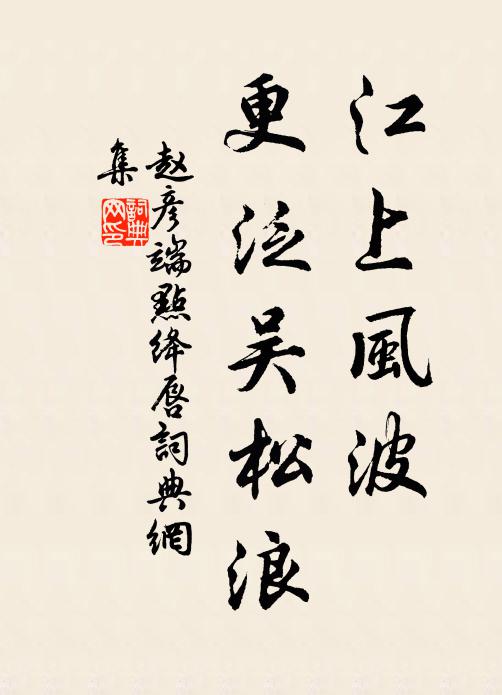 江上風波
更泛吴松浪
赵彦端點绛唇詞典網
集
詞典网印